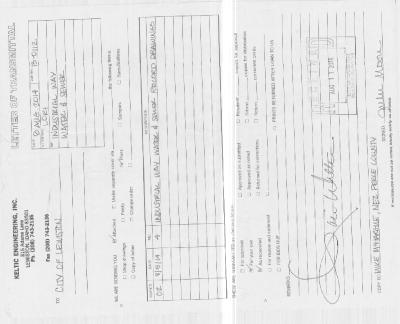 LETTER OF TRANSMITTAL
KELTIC ENGINEERING, INC.
Ph. (208) 743-2135
Fax (208) 743-2135
TO CITY OF LEWISTON
DATE 8 AUG 2014
INDUSTRIAL WAY
WATER & SEWER
WE ARE SENDING YOU
Attached
Under separate cover via
the following items:
Shop drawings
Prints
Plans
Samples
Specifications
Copy of letter
Change order
COPIES
DATE
NO.
DESCRIPTION
02
8/5/14
4
INDUSTRIAL WAY WATER & SEWER RECORD DRAWINGS
THESE ARE TRANSMITTED as checked below:
For approval
Approved as submitted
Resubmit
copies for approval
For your use
Approved as noted
Submit
copies for distribution
As requested
Returned for corrections
Return
corrected prints
For review and comment
FOR BIDS DUE
PRINTS RETURNED AFTER LOAN TO US
REMARKS
COPY TO
NEZ PERCE COUNTY
SIGNED:
If enclosures are not as noted, kindly notify us at once.